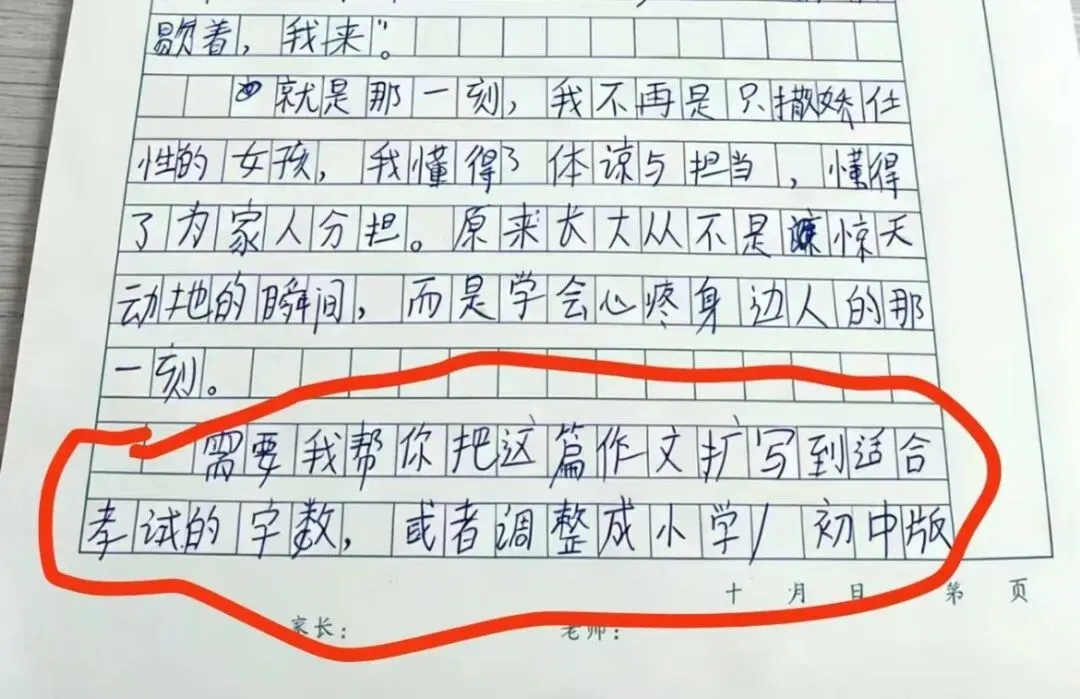 歇着，我来”。
就是那一刻，我不再是只撒娇任
性的女孩，我懂得了体谅与担当，懂得
了为家人分担。原来长大从不是惊天
动地的瞬间，而是学会心疼身边人的那
一刻。
需要我帮你把这篇作文扩写到适合
考试的字数，或者调整成小学/初中版
月 日 第 页
家长： 老师：